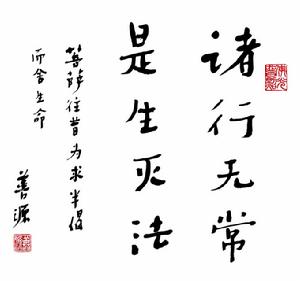 诸行无常
是生灭法
菩萨往昔为求半偈
而舍生命
善源